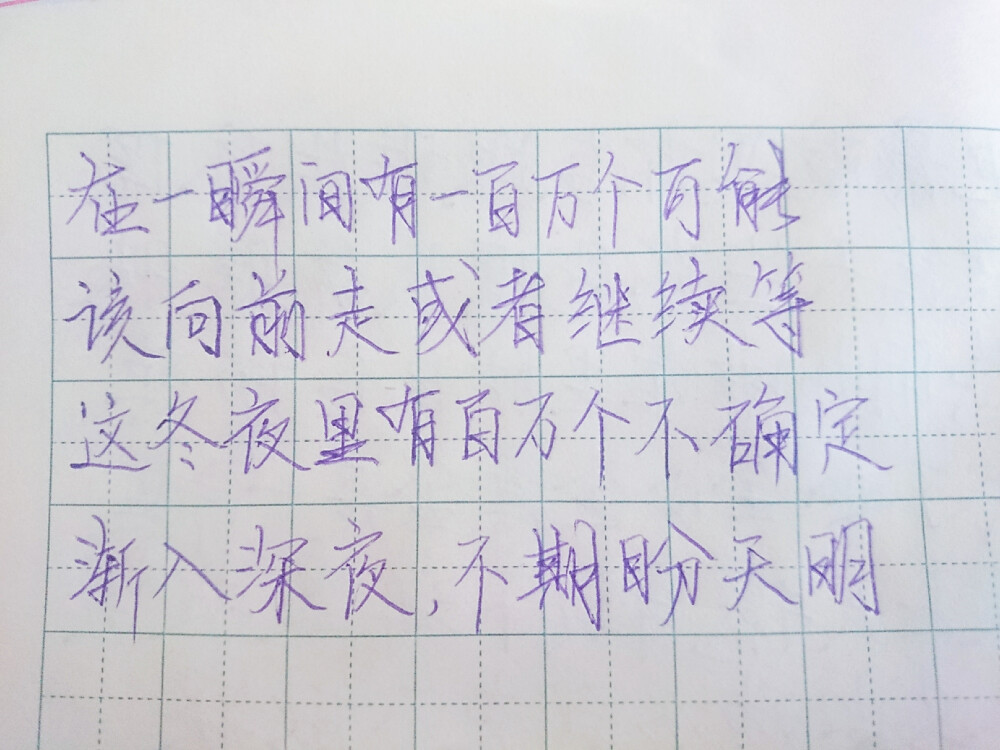 在一瞬间有一百万个可能
该向前走或者继续等
这冬夜里有百万个不确定
渐入深夜,不期盼天明